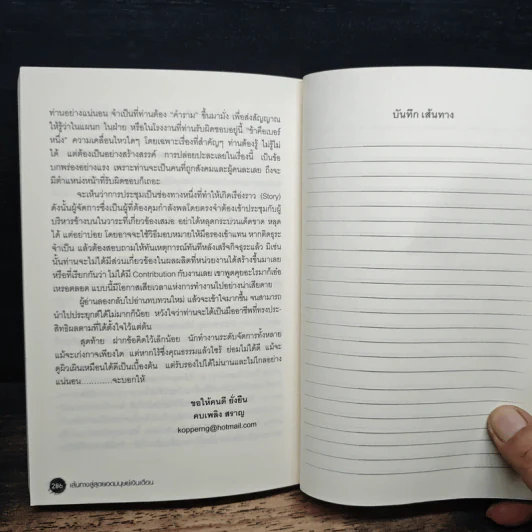 ท่านอย่างแน่นอน จำเป็นที่ท่านต้อง "คำราม" ขึ้นมาบ้าง เพื่อส่งสัญญาณ
ให้รู้ว่าในแผนก ในฝ่าย หรือในโรงงานที่ท่านรับผิดชอบอยู่นี้ "ข้าคือเบอร์
หนึ่ง" ความเคลื่อนไหวใดๆ โดยเฉพาะเรื่องที่สำคัญๆ ท่านต้องรู้ ไม่รู้ไม่
ได้ แต่ต้องเป็นอย่างสร้างสรรค์ การปล่อยปะละเลยในเรื่องนี้ เป็นข้อ
บกพร่องอย่างแรง เพราะท่านจะเป็นคนที่ถูกสังคมและผู้คนละเลย ถึงจะ
มีตำแหน่งหน้าที่รับผิดชอบก็เถอะ
จะเห็นว่าการประชุมเป็นช่องทางหนึ่งที่ทำให้เกิดเรื่องราว (Story)
ดังนั้นผู้จัดการซึ่งเป็นผู้ที่ต้องคุมกำลังพลโดยตรงจำต้องเข้าประชุมกับผู้
บริหารข้างบนในวาระที่เกี่ยวข้องเสมอ อย่าได้หลุดกระบวนเด็ดขาด หลุด
ได้ แต่อย่าบ่อย โดยอาจจะใช้วิธีมอบหมายให้มือรองเข้าแทน หากติดธุระ
จำเป็น แล้วต้องสอบถามให้ทันเหตุการณ์ทันทีหลังเสร็จกิจธุระแล้ว มิเช่น
นั้นท่านจะไม่ได้มีส่วนเกี่ยวข้องในผลผลิตที่หน่วยงานได้สร้างขึ้นมาเลย
หรือที่เรียกกันว่า ไม่ได้มี Contribution กับงานเลย เขาพูดคุยอะไรมาก็เอ๋อ
เหรอตลอด แบบนี้มีโอกาสเสียเวลาแห่งการทำงานไปอย่างน่าเสียดาย
ผู้อ่านลองกลับไปอ่านทบทวนใหม่ แล้วจะเข้าใจมากขึ้น จนสามารถ
นำไปประยุกต์ได้ไม่มากก็น้อย หวังใจว่าท่านจะเป็นมืออาชีพที่ทรงประ-
สิทธิผลตามที่ได้ตั้งใจไว้แต่ต้น
สุดท้าย ฝากข้อคิดไว้เล็กน้อย นักทำงานระดับจัดการทั้งหลาย
แม้จะเก่งกาจเพียงใด แต่หากไร้ซึ่งคุณธรรมแล้วไซร้ ย่อมไม่ได้ดี แม้จะ
ดูผิวเผินเหมือนได้ดีเป็นเบื้องต้น แต่รับรองไปได้ไม่นานและไม่ไกลอย่าง
แน่นอน............จะบอกให้
ขอให้คนดี ยั่งยืน
คบเพลิง สราญ
kopperng@hotmail.com
286 เส้นทางสู่สุดยอดมนุษย์เงินเดือน
บันทึก เส้นทาง